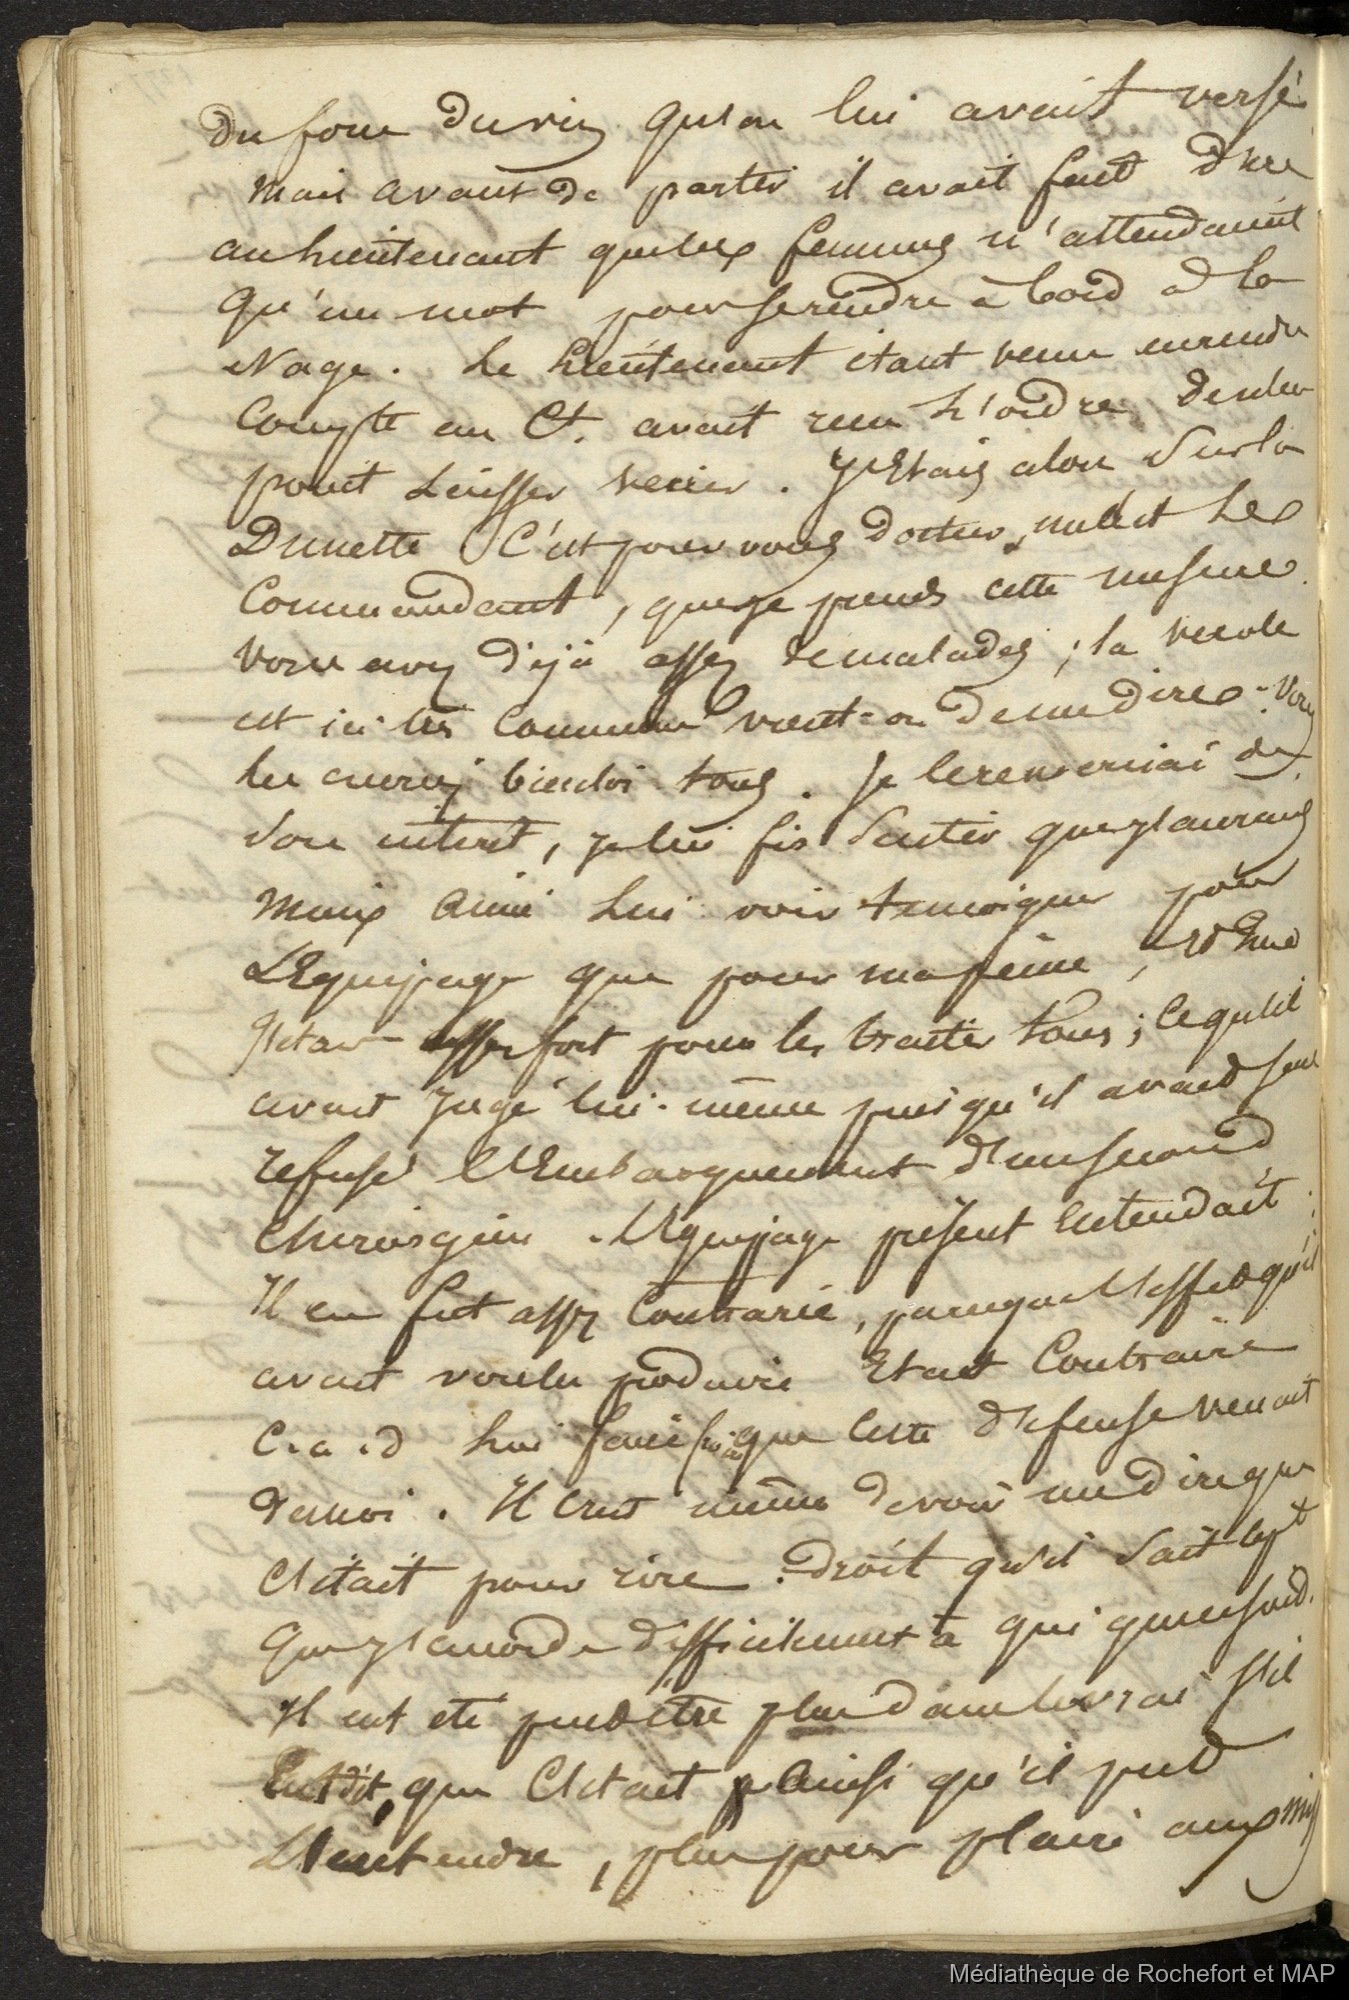 du fond du vin qu'on lui avait versé
mais avant de partir il avait fait dire
au lieutenant que les femmes n'attendaient
qu'un mot pour se rendre à bord à la
Nage. Le lieutenant étant venu en rendre
Compte au Ct. avait reçu l'ordre de n'en
point laisser venir. J'Etais alors sur la
Dunette C'est pour vous docteur, me dit le
Commandant, que je prends cette mesure
vous avez déjà assez de malades ; la verole
est ici très commune vient-on de me dire. Vous
les auriez bientôt tous. Je le remerciai de
son interet, je lui fis sentir que j'aurais
mieux aimé lui voir temoigner pour
L'Equipage que pour ma peine,
J'étais assez fort pour les traiter tous ; ce qu'il
avait jugé lui-même puisqu'il avait seul
refusé l'Embarquement d'un second
Chirurgien. L'Equipage présent entendait ;
Il en fut assez contrarié, parceque l'effet qu'il
avait voulu produire Etait Contraire
C. a. d lui faire que cette défense venait
de moi. Il crut même devoir me dire que
C'était pour rire. droit qu'il sait
que j'accorde difficilement à qui que ce soit.
Il eut été peut être plus dans le vrai s'il
Eut dit, que C'était ainsi qu'il put
L'entendre, plus pour plaire aux
Médiathèque de Rochefort et MAP